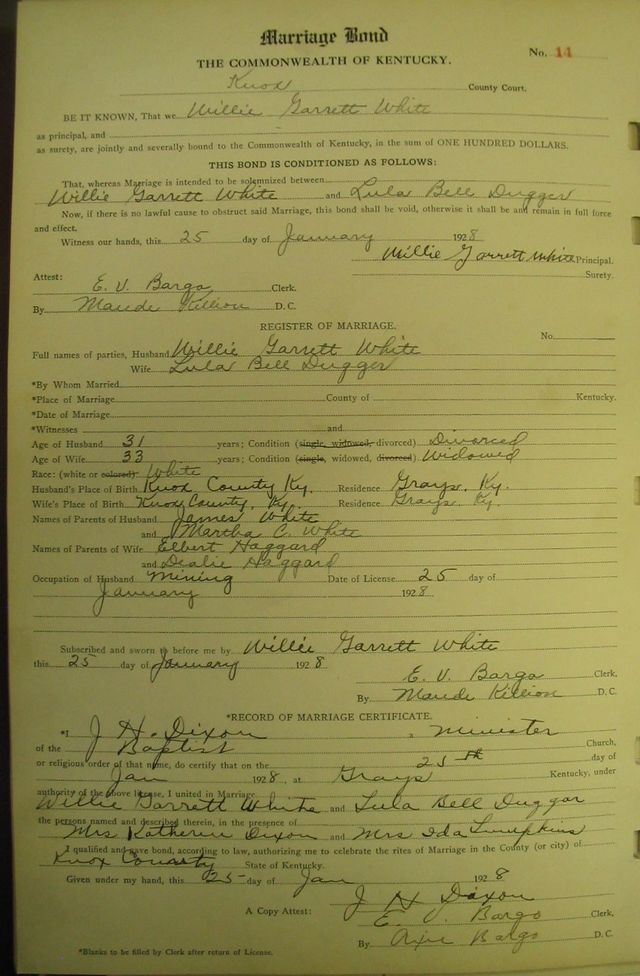 Marriage Bond
No. 14
THE COMMONWEALTH OF KENTUCKY.
Knox County Court.
BE IT KNOWN, That we Willie Garrett White
as principal, and
as surety, are jointly and severally bound to the Commonwealth of Kentucky, in the sum of ONE HUNDRED DOLLARS.
THIS BOND IS CONDITIONED AS FOLLOWS:
That, whereas Marriage is intended to be solemnized between
Willie Garrett White and Lula Bell Dugger
Now, if there is no lawful cause to obstruct said Marriage, this bond shall be void, otherwise it shall be and remain in full force
and effect.
Witness our hands, this 25 day of January 1928
Willie Garrett White Principal.
Surety.
Attest:
E. V. Bargo Clerk.
By Maude Killion D. C.
REGISTER OF MARRIAGE.
No.
Full names of parties, Husband Willie Garrett White
Wife Lula Bell Dugger
*By Whom Married
*Place of Marriage County of Kentucky.
*Date of Marriage
*Witnesses and
Age of Husband 31 years; Condition (single, widowed, divorced) Divorced
Age of Wife 33 years; Condition (single, widowed, divorced) Widowed
Race: (white or colored) White
Husband's Place of Birth Knox County Ky. Residence Grays, Ky.
Wife's Place of Birth Knox County, Ky. Residence Grays, Ky.
Names of Parents of Husband James White
and Martha C. White
Names of Parents of Wife Elbert Haggard
and Dealie Haggard
Occupation of Husband Mining Date of License 25 day of
January 1928
Subscribed and sworn to before me by Willie Garrett White
this 25 day of January 1928
E. V. Bargo Clerk,
By Maude Killion D. C.
*RECORD OF MARRIAGE CERTIFICATE.
*I J H. Dixon a Minister
of the Baptist Church,
or religious order of that name, do certify that on the 25th day of
Jan 1928, at Grays Kentucky, under
authority of the above license, I united in Marriage
Willie Garrett White and Lula Bell Duggar
the persons named and described therein, in the presence of
Mrs Katherine Dixon and Mrs Ida Lumpkins
I qualified and gave bond, according to law, authorizing me to celebrate the rites of Marriage in the County (or city) of
Knox County State of Kentucky.
Given under my hand, this 25 day of Jan 1928
J H Dixon
A Copy Attest: E. V. Bargo Clerk,
By Bargo D. C.
*Blanks to be filled by Clerk after return of License.